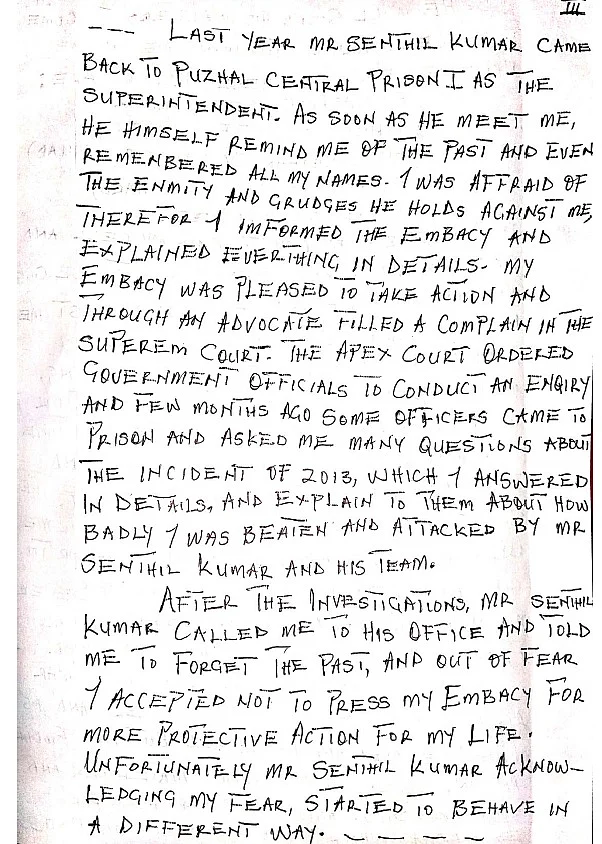 III
--- LAST YEAR MR SENTHIL KUMAR CAME
BACK TO PUZHAL CENTRAL PRISON I AS THE
SUPERINTENDENT. AS SOON AS HE MEET ME,
HE HIMSELF REMIND ME OF THE PAST AND EVEN
REMENBERED ALL MY NAMES. I WAS AFFRAID OF
THE ENMITY AND GRUDGES HE HOLDS AGAINST ME,
THEREFOR I IMFORMED THE EMBACY AND
EXPLAINED EVERTHING IN DETAILS. MY
EMBACY WAS PLEASED TO TAKE ACTION AND
THROUGH AN ADVOCATE FILLED A COMPLAIN IN THE
SUPEREM COURT. THE APEX COURT ORDERED
GOVERNMENT OFFICIALS TO CONDUCT AN ENQIRY
AND FEW MONTHS AGO SOME OFFICERS CAME TO
PRISON AND ASKED ME MANY QUESTIONS ABOUT
THE INCIDENT OF 2013, WHICH I ANSWERED
IN DETAILS, AND EXPLAIN TO THEM ABOUT HOW
BADLY I WAS BEATEN AND ATTACKED BY MR
SENTHIL KUMAR AND HIS TEAM.
AFTER THE INVESTIGATIONS, MR SENTHIL
KUMAR CALLED ME TO HIS OFFICE AND TOLD
ME TO FORGET THE PAST, AND OUT OF FEAR
I ACCEPTED NOT TO PRESS MY EMBACY FOR
MORE PROTECTIVE ACTION FOR MY LIFE.
UNFORTUNATELY MR SENTHIL KUMAR ACKNOW-
LEDGING MY FEAR, STARTED TO BEHAVE IN
A DIFFERENT WAY. - - - -